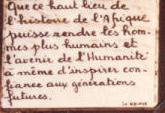 Que ce haut lieu de
l'histoire de l'Afrique
puisse rendre les hom-
mes plus humains et
l'avenir de l'Humanité
à même d'inspirer con-
fiance aux générations
futures.